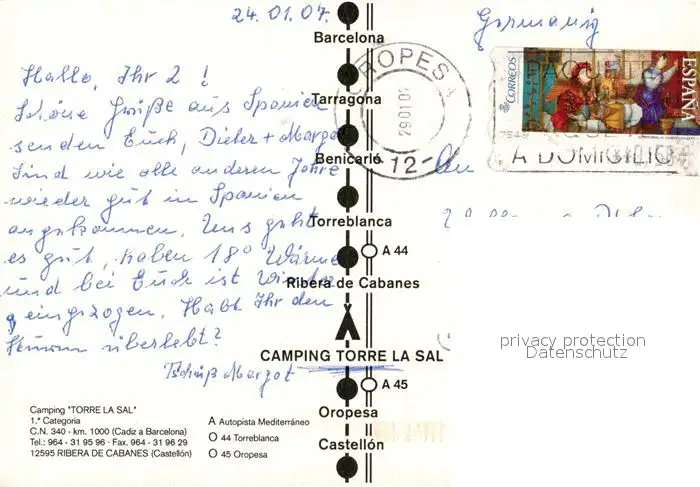 24.01.07.
Germaniy
Hallo, Ihr 2 !
Schöne Grüße aus Spanien
senden Euch, Dieter + Margot
Sind wie alle anderen Jahre
wieder gut in Spanien
angekommen. Uns geht
es gut, haben 18° Wärme
und bei Euch ist Winter
eingezogen. Habt Ihr den
überlebt?
Tschüß Margot
Barcelona
Tarragona
Benicarló
Torreblanca
A 44
Ribera de Cabanes
CAMPING TORRE LA SAL
A 45
Oropesa
Castellón
Camping "TORRE LA SAL"
1.ª Categoria
C.N. 340 - km. 1000 (Cadiz a Barcelona)
Tel.: 964 - 31 95 96 - Fax. 964 - 31 96 29
12595 RIBERA DE CABANES (Castellón)
A Autopista Mediterráneo
O 44 Torreblanca
O 45 Oropesa
OROPESA
-12-
CORREOS
ESPAÑA
A DOMICILIO
An
privacy protection
Datenschutz